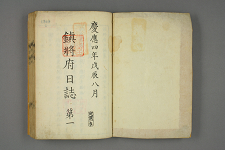 慶應四年戊辰八月
鎮將府日誌 第一